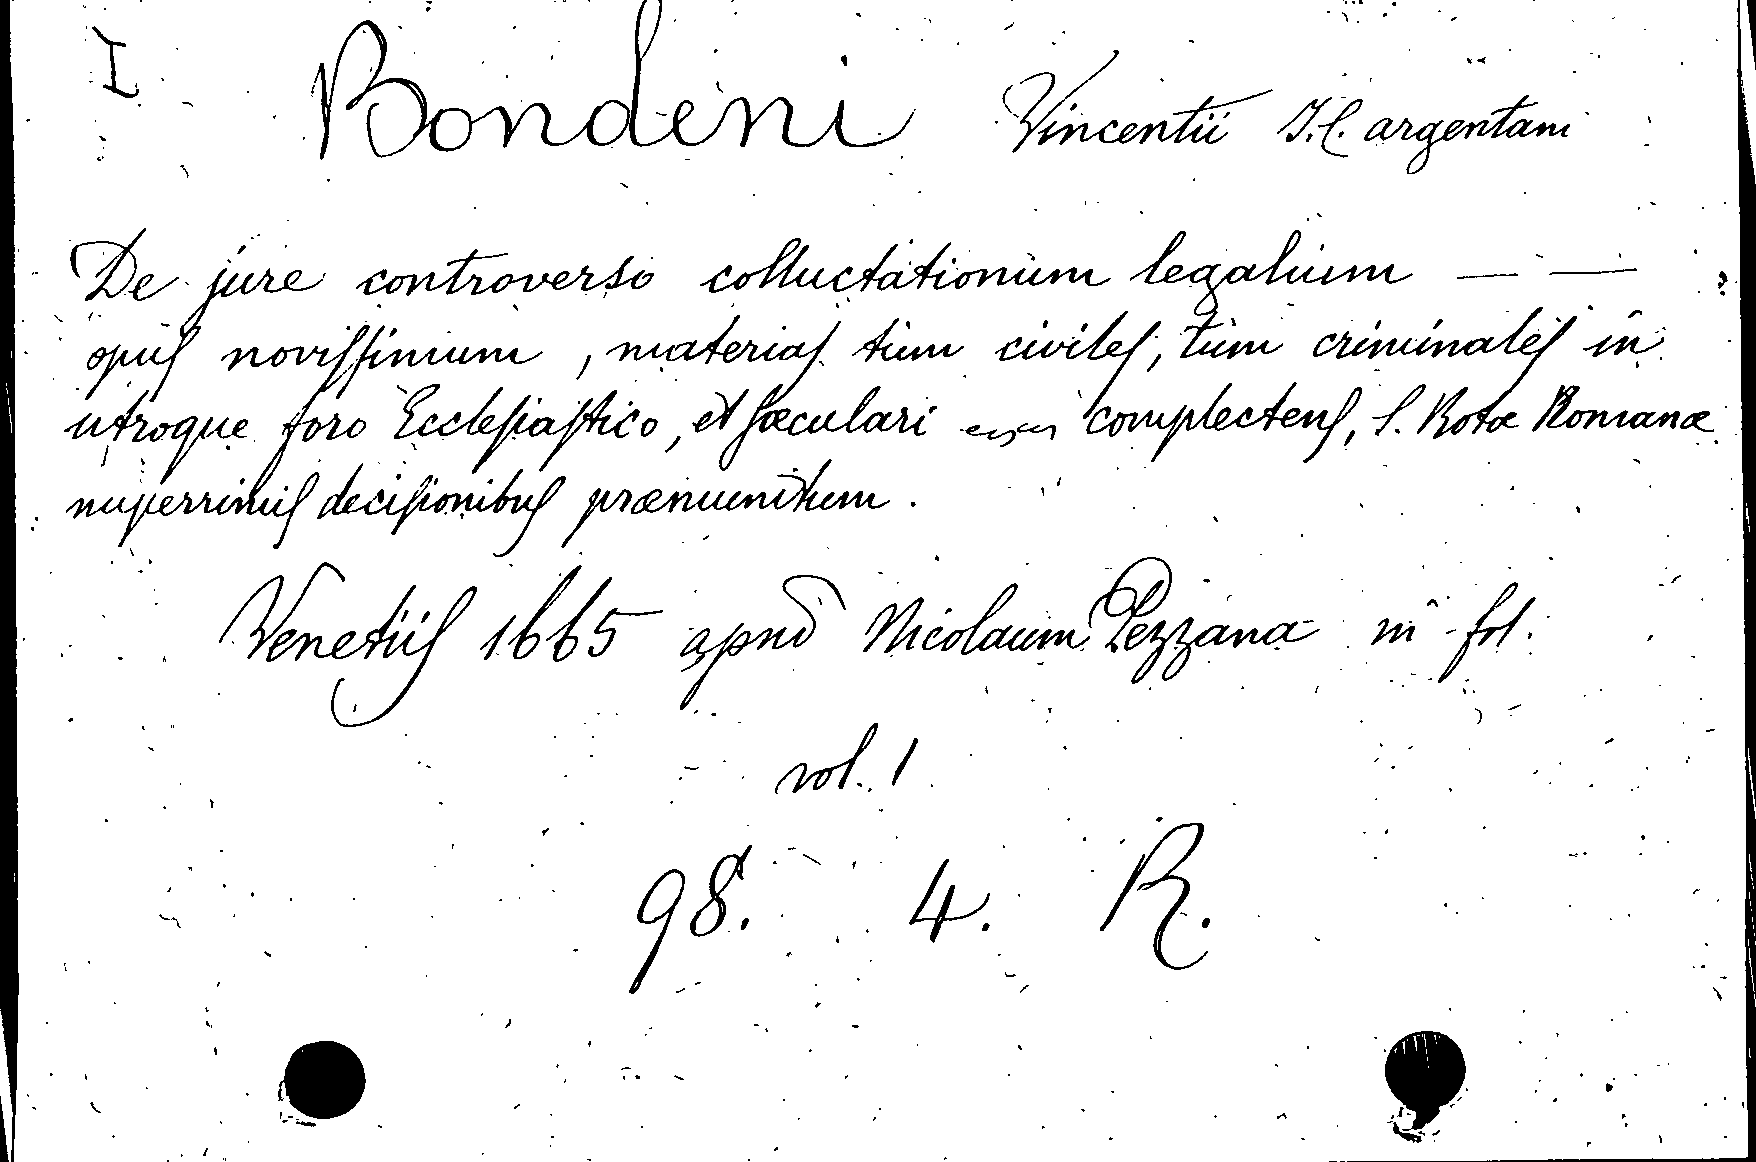 I Bondeni Vincentii J.C. argentani
De jure controverso colluctationum legalium — —
opuſ noviſſimum, materiaſ tum civileſ, tum criminaleſ in
utroque foro Eccleſiaſtico, et ſæculari complectenſ, S. Rotæ Romanæ
nuperrimiſ deciſionibuſ præmunitum.
Venetiiſ 1665 apud Nicolaum Pezzana in fol.
vol. 1
98. 4. R.